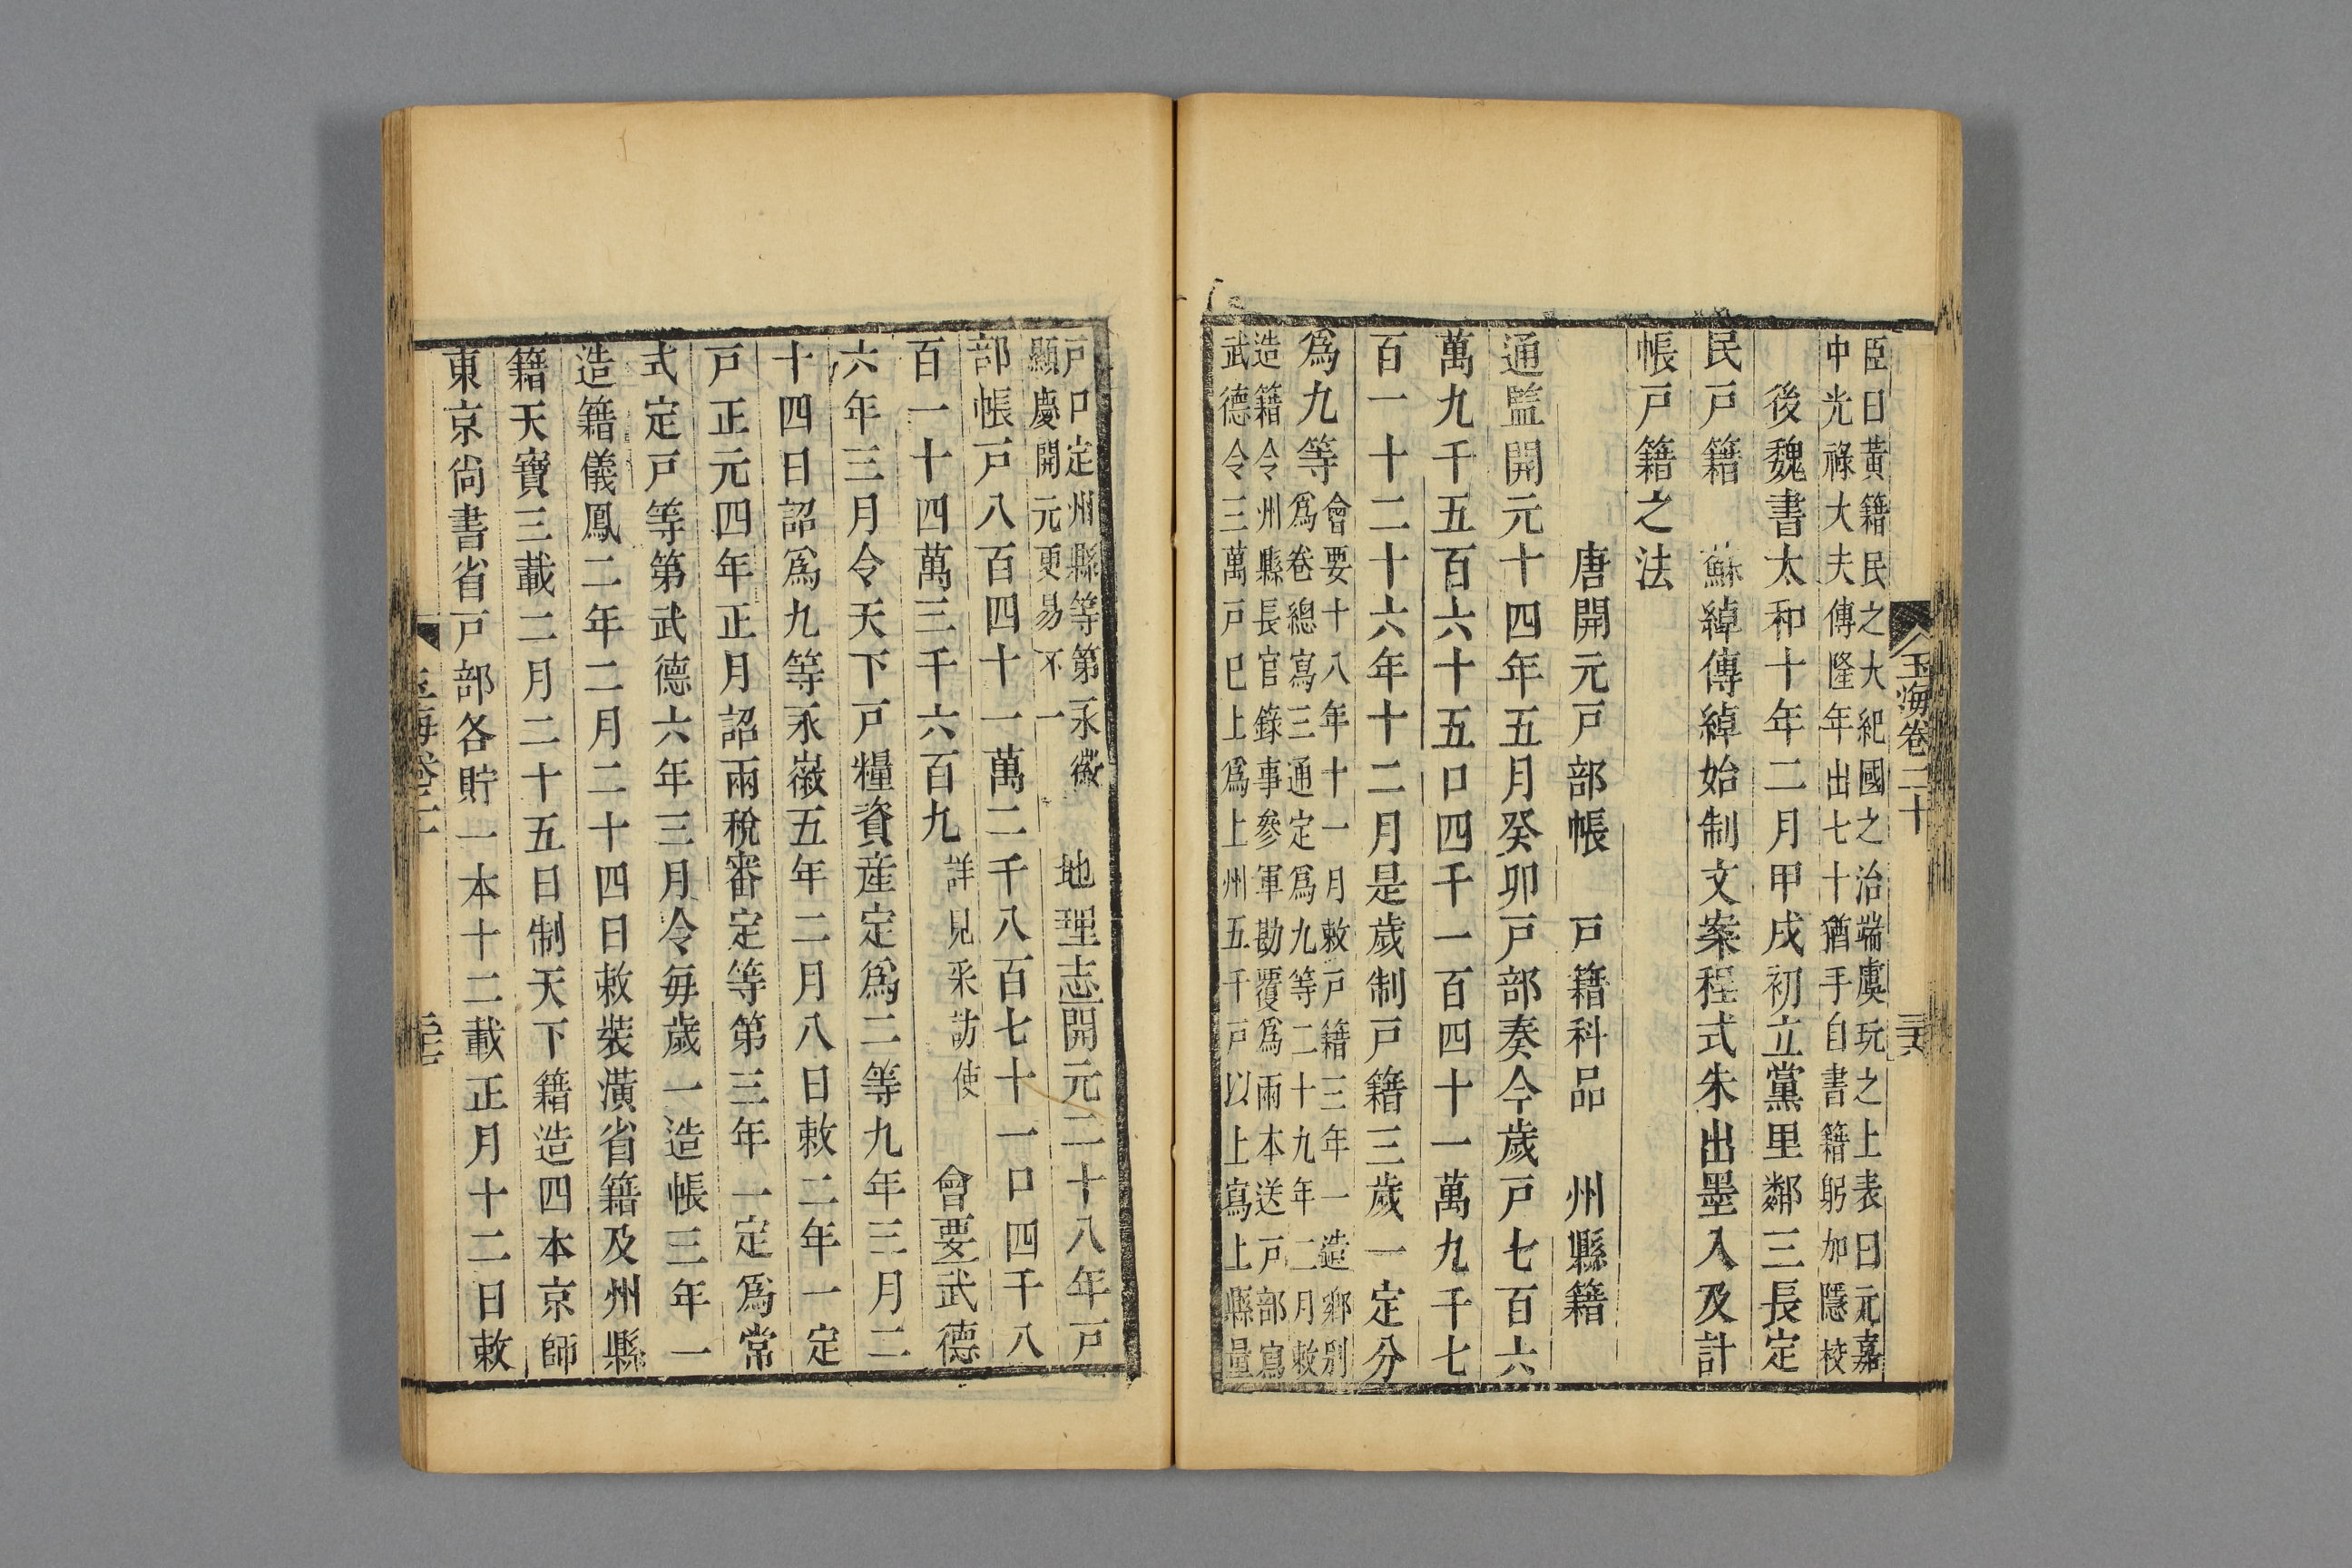 玉海卷二十
臣曰黃籍民之大紀國之治端虞玩之上表曰元嘉
中光祿大夫傅隆年出七十猶手自書籍躬加隱校
後魏書太和十年二月甲戌初立黨里鄰三長定
民戸籍　蘇綽傳綽始制文案程式朱出墨入及計
帳戸籍之法
唐開元戸部帳　戸籍科品　州縣籍
通監開元十四年五月癸卯戸部奏今歲戸七百六
萬九千五百六十五口四千一百四十一萬九千七
百一十二十六年十二月是歲制戸籍三歲一定分
爲九等
會要十八年十一月敕戸籍三年一造鄉別
爲卷總寫三通定爲九等二十九年二月敕
造籍令州縣長官錄事參軍勘覆爲兩本送戸部寫
武德令三萬戸已上爲上州五千戸以上寫上縣量
戸口定州縣等第永徽
顯慶開元更易不一
地理志開元二十八年戸
部帳戸八百四十一萬二千八百七十一口四千八
百一十四萬三千六百九
詳見采訪使
會要武德
六年三月令天下戸糧資産定爲二等九年三月二
十四日詔爲九等永徽五年二月八日敕二年一定
戸正元四年正月詔兩稅審定等第三年一定爲常
式定戸等第武德六年三月令每歲一造帳三年一
造籍儀鳳二年二月二十四日敕裝潢省籍及州縣
籍天寶三載二月二十五日制天下籍造四本京師
東京尙書省戸部各貯一本十二載正月十二日敕